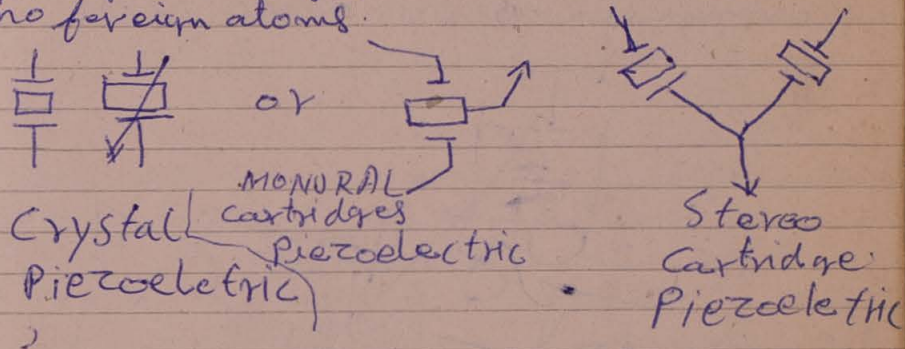 no foreign atoms.
or
MONURAL
Cartridges
Piezoelectric
Crystal
Piezoeletric
Stereo
Cartridge
Piezoeletric